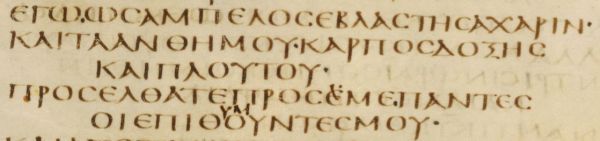 ΕΓΩΩΣΑΜΠΕΛΟΣΕΒΛΑΣΤΗΣΑΧΑΡΙΝ·
ΚΑΙΤΑΑΝΘΗΜΟΥ·ΚΑΡΠΟΣΔΟΞΗΣ
ΚΑΙΠΛΟΥΤΟΥ·
ΠΡΟΣΕΛΘΑΤΕΠΡΟΣΕΜΕΠΑΝΤΕΣ
ΟΙΕΠΙΘΥΜΟΥΝΤΕΣΜΟΥ·